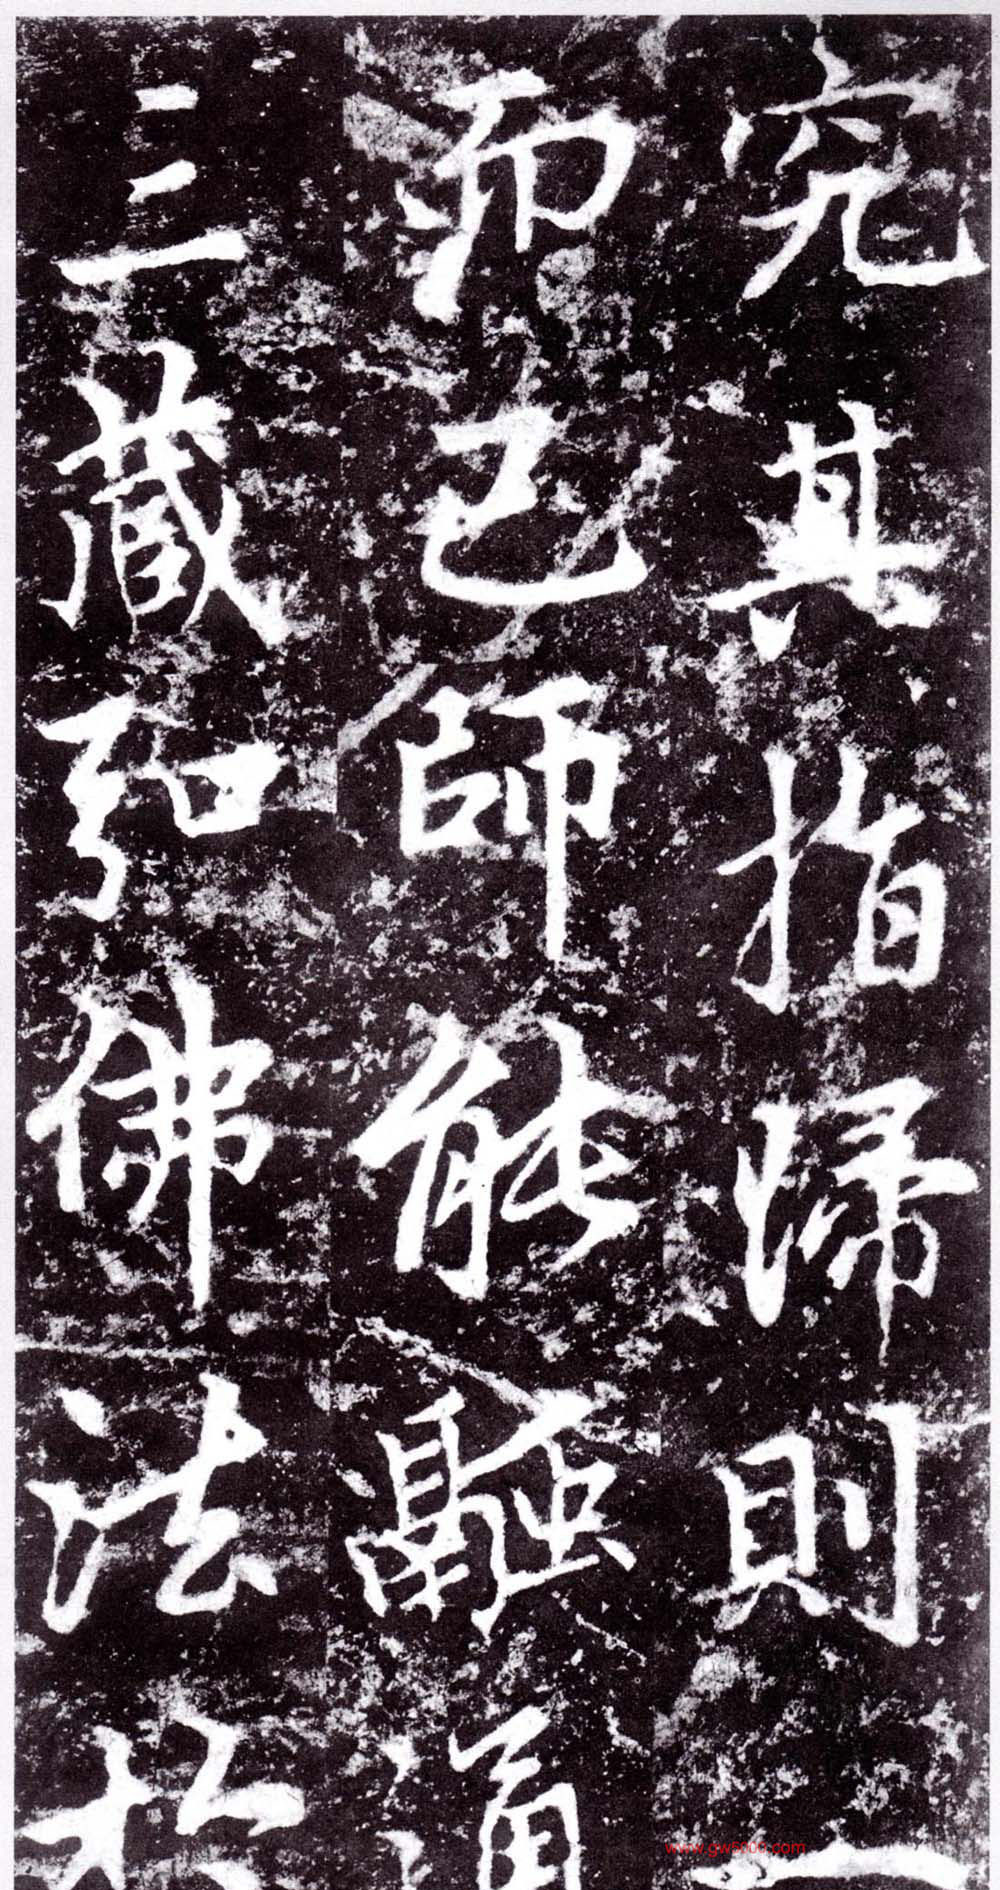 究其指歸則一
而已師能融通
三藏弘佛法於
www.gw5800.com